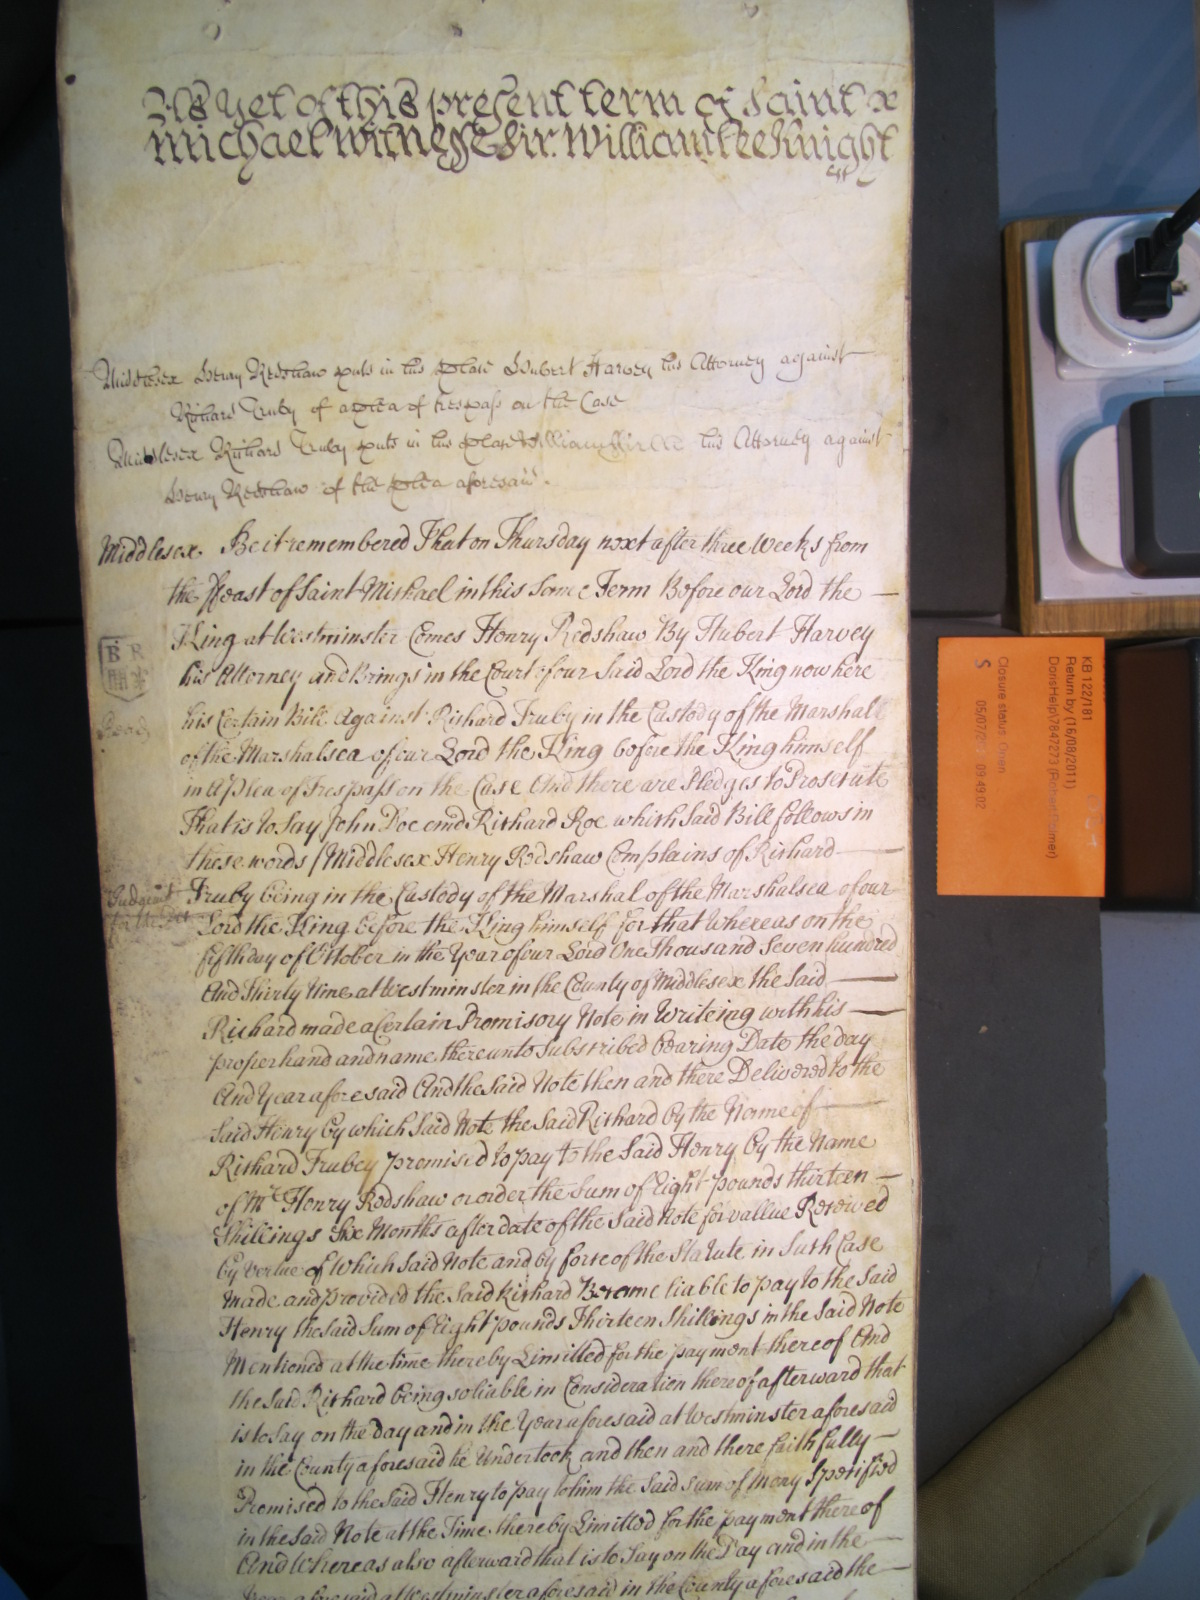 As Yet of this present term of Saint
Michael Witness Sir William Lee Knight
Middlesex Henry Redshaw puts in his Place Hubert Harvey his Attorney against
Richard Truby of a plea of trespass on the Case
Middlesex Richard Truby puts in his place William his Attorney against
Henry Redshaw of the plea aforesaid.
Middlesex. Be it remembered That on Thursday next after three Weeks from
the ffeast of Saint Michael in this same Term Before our Lord the
King at Westminster Comes Henry Redshaw By Hubert Harvey
his Attorney and Brings in the Court of our Said Lord the King now here
his Certain Bill Against Richard Truby in the Custody of the Marshall
of the Marshalsea of our Lord the King before the King himself
in a plea of Trespass on the Case And there are Pledges to Prosecute
That is to Say John Doe and Richard Roe which Said Bill follows in
these words / Middlesex Henry Redshaw Complains of Richard
Truby being in the Custody of the Marshal of the Marshalsea of our
Lord the King before the King himself for that Whereas on the
fifth day of October in the Year of our Lord One Thousand Seven hundred
And Thirty Nine at Westminster in the County of Middlesex the Said
Richard made a Certain Promisory Note in Writeing with his
proper hand and name thereunto Subscribed bearing Date the day
And Year aforesaid And the Said Note then and there Delivered to the
Said Henry by which Said Note the Said Richard by the Name of
Richard Trubey promised to pay to the Said Henry by the Name
of Mr Henry Redshaw or order the Sum of Eight pounds thirteen
Shillings Six Months after date of the Said Note for vallue Received
by vertue of Which Said Note and by force of the Statute in Such Case
Made and provided the Said Richard Became liable to pay to the Said
Henry the Said Sum of Eight pounds Thirteen Shillings in the Said Note
Mentioned at the time thereby Limitted for the payment thereof And
the Said Richard being so liable in Consideration thereof afterward that
is to Say on the day and in the Year aforesaid at Westminster aforesaid
in the County aforesaid he Undertook and then and there faithfully
Promised to the Said Henry to pay to him the Said sum of Mony Specified
in the Said Note at the Time thereby Limitted for the payment thereof
And Whereas also afterward that is to Say on the Day and in the
Year aforesaid at Westminster aforesaid in the County aforesaid the
B R
Judgmt
KB 122/181
Return by (16/08/2011)
Closure status: Open
S 05/07/ 09:49:02